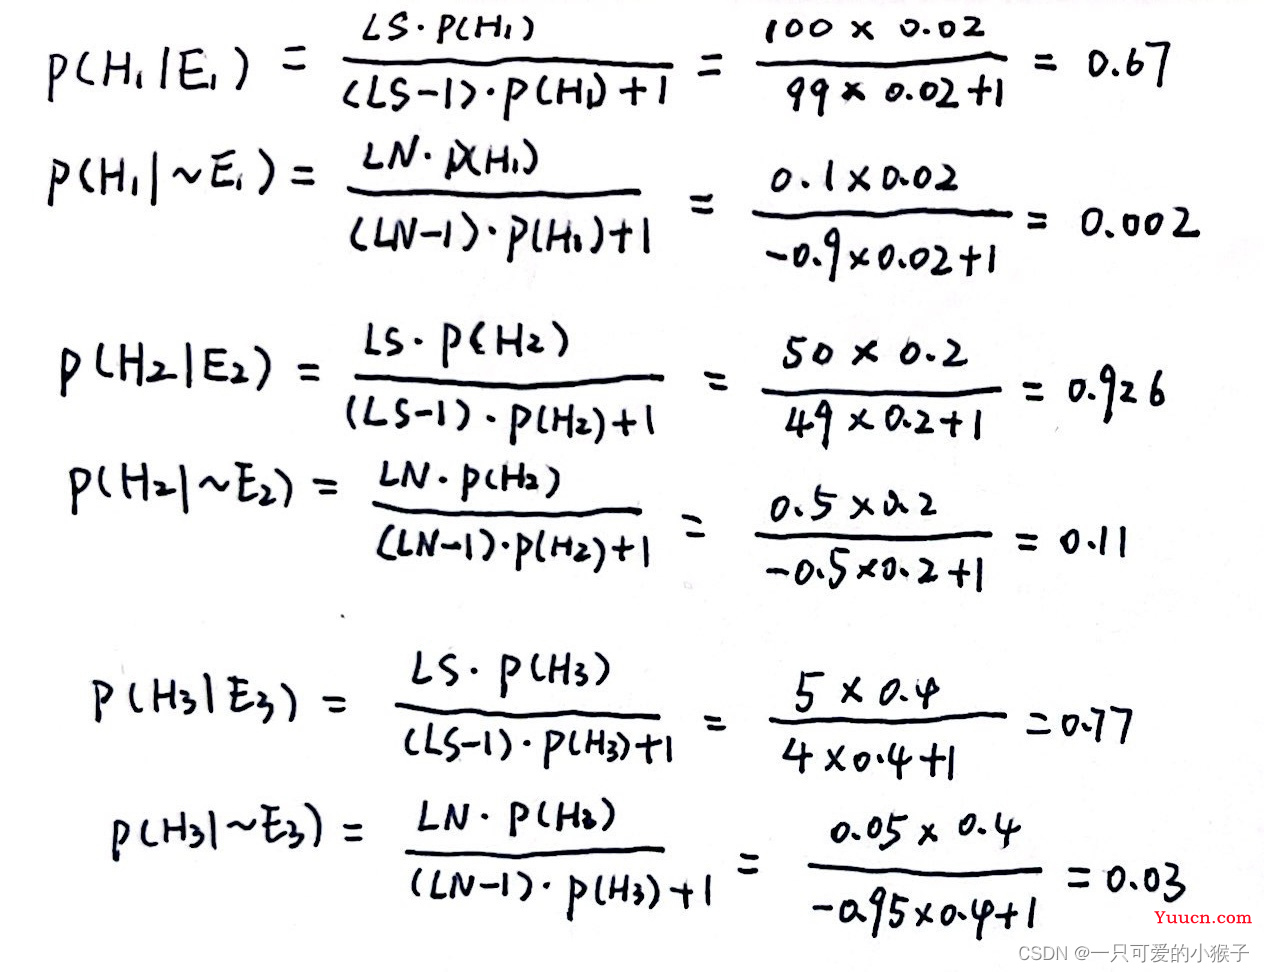 P(H₁|E₁) = LS·P(H₁) / (LS-1)·P(H₁)+1 = 100 × 0.02 / 99 × 0.02+1 = 0.67
P(H₁|~E₁) = LN·P(H₁) / (LN-1)·P(H₁)+1 = 0.1×0.02 / -0.9×0.02+1 = 0.002
P(H₂|E₂) = LS·P(H₂) / (LS-1)·P(H₂)+1 = 50 × 0.2 / 49 × 0.2+1 = 0.926
P(H₂|~E₂) = LN·P(H₂) / (LN-1)·P(H₂)+1 = 0.5×0.2 / -0.5×0.2+1 = 0.11
P(H₃|E₃) = LS·P(H₃) / (LS-1)·P(H₃)+1 = 5 × 0.4 / 4×0.4+1 = 0.77
P(H₃|~E₃) = LN·P(H₃) / (LN-1)·P(H₃)+1 = 0.05 × 0.4 / -0.95×0.4+1 = 0.03
Yuucn.com
CSDN @一只可爱的小猴子